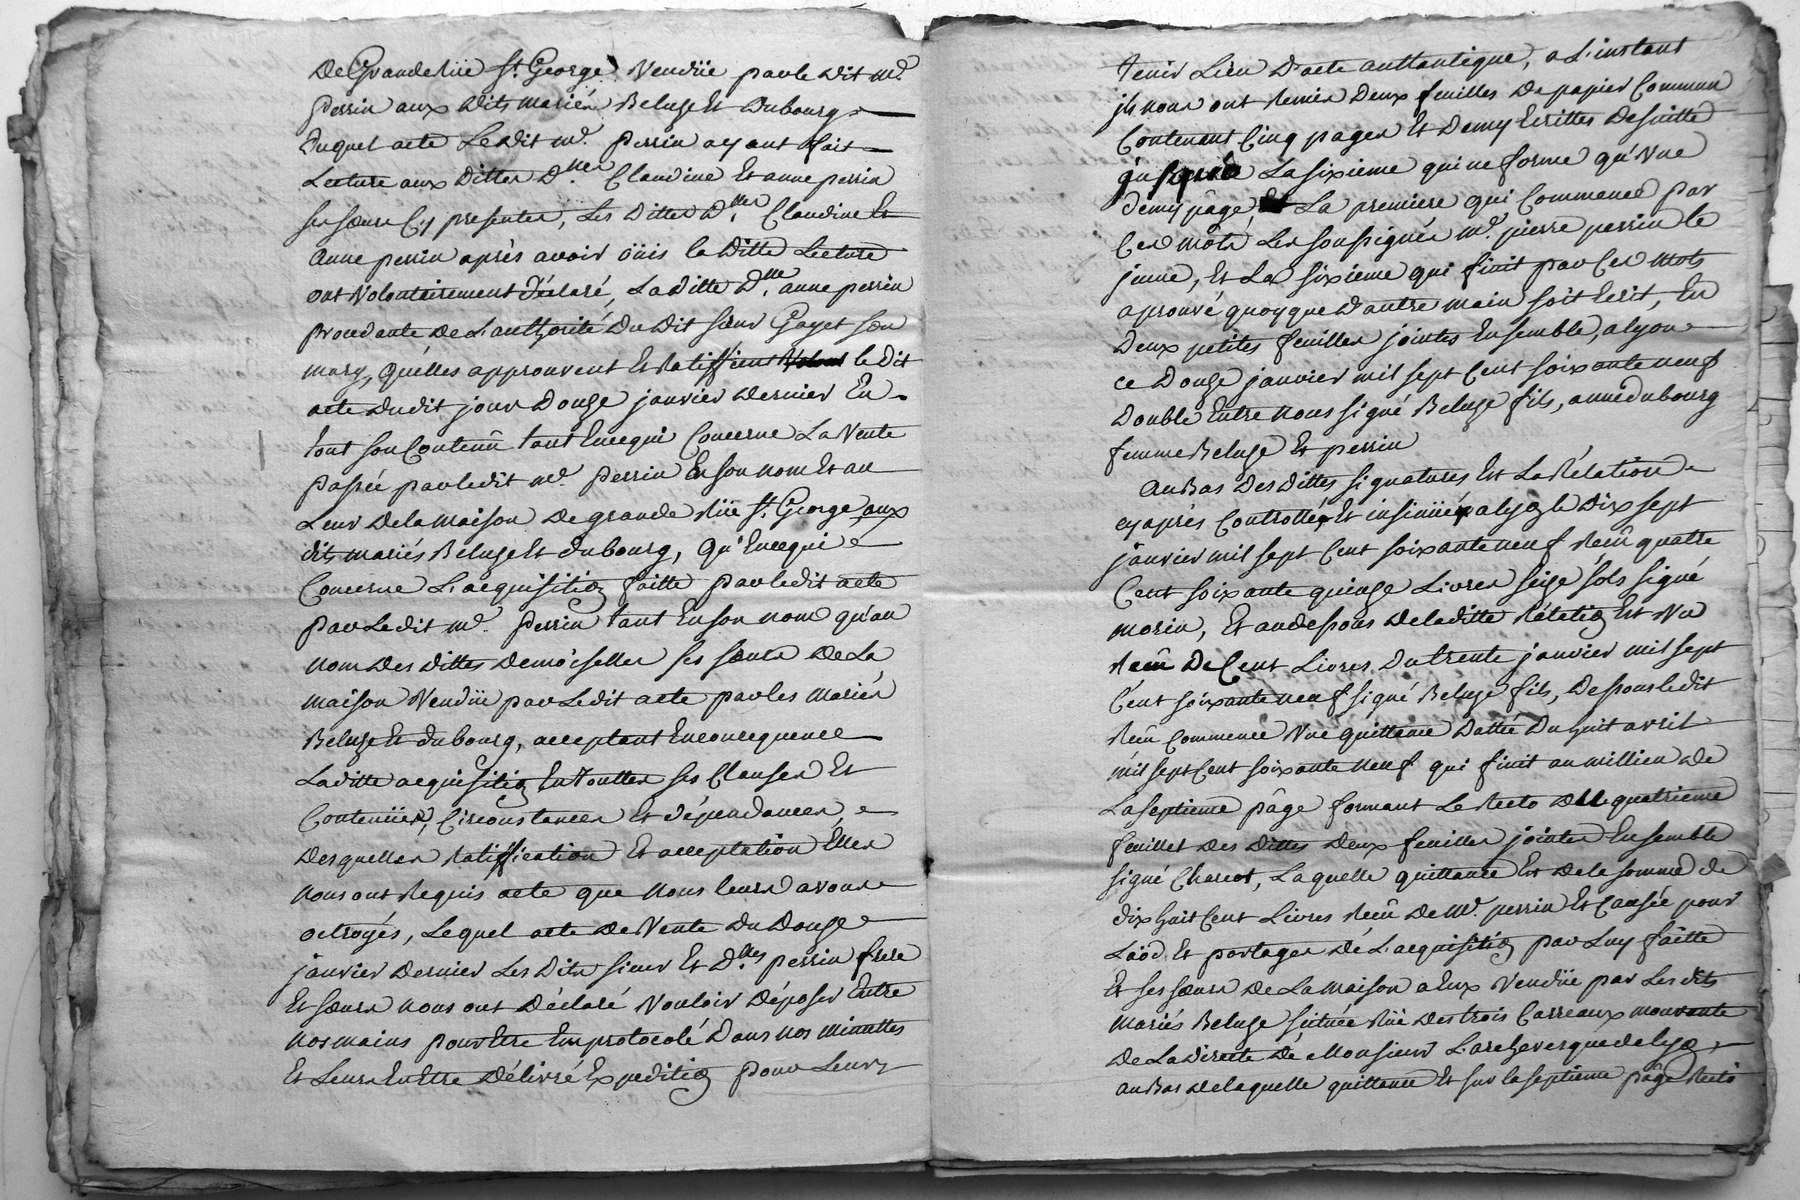 De Grande rüe St. George Vendüe par le dit mr.
Perrin aux dits mariés Beluze Et Dubourg,
Duquel acte Le dit mr. Perrin ayant fait
Lecture aux dittes Dlles Claudine Et anne perrin
ses sœurs Cy presentes, Les dittes Dlles Claudine Et
Anne perrin après avoir öuis la ditte Lecture
ont Volontairement déclaré, La ditte Dlle anne perrin
procédante de L'authorité du dit sieur Gayet son
mary, qu'elles approuvent Et Ratiffient le dit
acte dudit jour Douze janvier dernier En
tout son Contenû tant Encequi Concerne La Vente
passée par ledit mr. perrin En son nom Et au
Leur de la maison De grande Rüe St. George aux
dits mariés Beluze Et Dubourg, qu'Encequi
Concerne L'acquisition faitte par ledit acte
par Ledit mr. Perrin tant En son nom qu'au
nom des dittes demoiselles ses sœurs De La
maison Vendüe par Ledit acte par les mariés
Beluze Et Dubourg, acceptant Enconcequence
La ditte acquisition En touttes ses Clauses Et
Contenües, Circonstances Et dépendances,
Desquelles Ratiffication Et acceptation Elles
nous ont Requis acte que nous leurs avons
octroyés, Lequel acte de Vente du Douze
janvier dernier Les dits sieur Et Dlles perrin frere
Et sœurs nous ont Déclaré Vouloir Déposer Entre
nos mains pour Etre Enprotocolé Dans nos minuttes
Et Leurs En Etre Délivré Expedition pour Leurs
tenir Lieu D'acte authantique, a L'instant
ils nous ont Remis Deux feuilles De papier Commun
Contenant Cinq pages Et Demy Ecrittes De suitte
La sixieme qui ne forme qu'Une
demy page La premiere qui Commence par
Ces môts Les soussignés mr. pierre perrin le
jeune, Et La sixieme qui finit par Ces mots
aprouvé quoyque d'autre main soit Ecrit, En
Deux petites feuilles jointes Ensemble, a lyon
ce Douze janvier mil sept Cent soixante neuf
Double Entre nous signé Beluze fils, anne Dubourg
femme Beluze Et perrin
Au Bas Des Dittes signatures Est La Rélation
cy après Controllé Et insinüé a lyon le Dix sept
janvier mil sept Cent soixante neuf Reçû quatre
Cent soixante quinze Livres seize sols signé
morin, Et au dessous de la ditte Rélation Est Un
Reçû De Cent Livres Du trente janvier mil sept
Cent soixante neuf signé Beluze fils, Dessous ledit
Reçû Commence Une quittance Dattée Du huit avril
mil sept Cent soixante neuf qui finit au millieu de
La septieme page formant Le Recto De quatrieme
feuillet Des Dittes Deux feuilles jointes Ensemble
signé Charcot, Laquelle quittance Est De la somme de
dix huit Cent Livres Reçû De Mr. perrin Et Causée pour
Laod Et portages De L'acquisition par Luy faitte
Et ses sœurs De La maison a Eux Vendüe par Lesdits
mariés Beluze scituée Rüe Des trois Carreaux mouvante
De La Directe De Monsieur L'archevesque de lyon,
au Bas de laquelle quittance Et sur la septieme page Recto